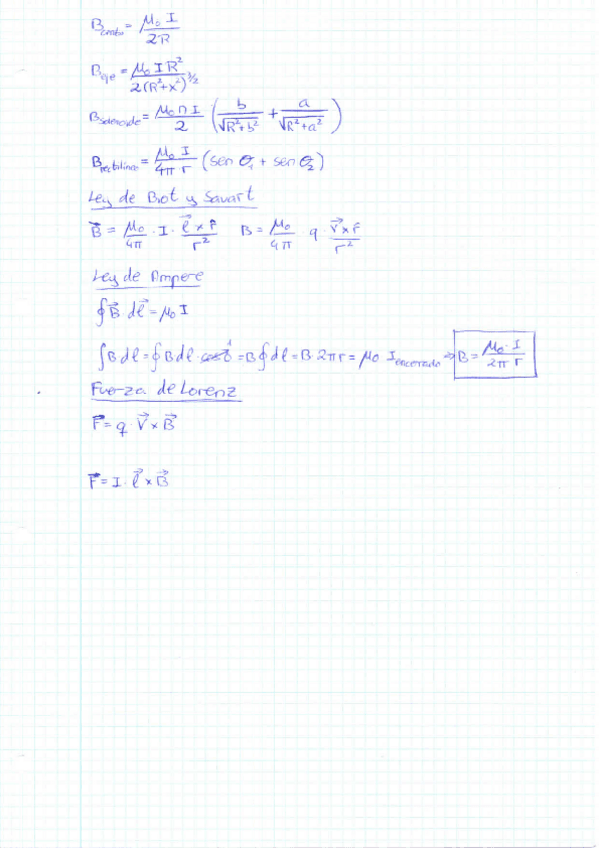 B_centro = μ₀ I / 2R
B_eje = μ₀ I R² / 2(R²+x²)^3/2
B_solenoide = μ₀ n I / 2 (b / √R²+b² + a / √R²+a²)
B_rectilineo = μ₀ I / 4π r (sen θ₁ + sen θ₂)
Ley de Biot y Savart
B⃗ = μ₀ / 4π · I · l⃗ × r̂ / r² B = μ₀ / 4π · q · V⃗ × r̂ / r²
Ley de Ampere
∮ B⃗ · dl⃗ = μ₀ I
∫ B dl = ∮ B dl · cos 0 ¹ = B ∮ dl = B · 2πr = μ₀ I_encerrado → B = μ₀ · I / 2π r
Fuerza de Lorenz
F⃗ = q · V⃗ × B⃗
F⃗ = I · l⃗ × B⃗